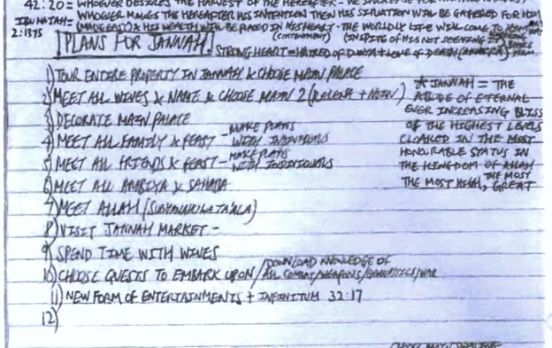 42:20 = WHOEVER DESIRES THE HARVEST OF THE HEREAFTER - WE INCREASE FOR HIM
IBN MAJAH - WHOEVER MAKES THE HEREAFTER HIS INTENTION THEN HIS SITUATION WILL BE GATHERED FOR HIM
& HIS WEALTH WILL BE PLACED IN HIS HEART - THE WORLDLY LIFE WILL COME TO
IN SPITE OF HIS NOT SEEKING
PLANS FOR JANNAH
STRONG HEART = HATRED OF DUNYA + LOVE OF DEATH
1) TOUR ENTIRE PROPERTY IN JANNAH & CHOOSE MAIN PALACE
2) MEET ALL WIVES & NAME & CHOOSE MAIN 2
3) DECORATE MAIN PALACE
4) MEET ALL FAMILY & FEAST - MAKE PLANS WITH INDIVIDUALS
5) MEET ALL FRIENDS & FEAST - MAKE PLANS WITH INDIVIDUALS
6) MEET ALL AMBIYA & SAHABA
7) MEET ALLAH (SUBHANAHU WA TA'ALA)
8) VISIT JANNAH MARKET -
9) SPEND TIME WITH WIVES
10) CHOOSE QUESTS TO EMBARK UPON / DOWNLOAD KNOWLEDGE OF ALL COMBAT/WEAPONS/
11) NEW FORM OF ENTERTAINMENTS + INFINITUM 32:17
12)
* JANNAH = THE
ABODE OF ETERNAL
EVER INCREASING BLISS
OF THE HIGHEST LEVELS
CLOAKED IN THE MOST
HONORABLE STATUS IN
THE KINGDOM OF ALLAH
THE MOST HIGH, THE MOST GREAT